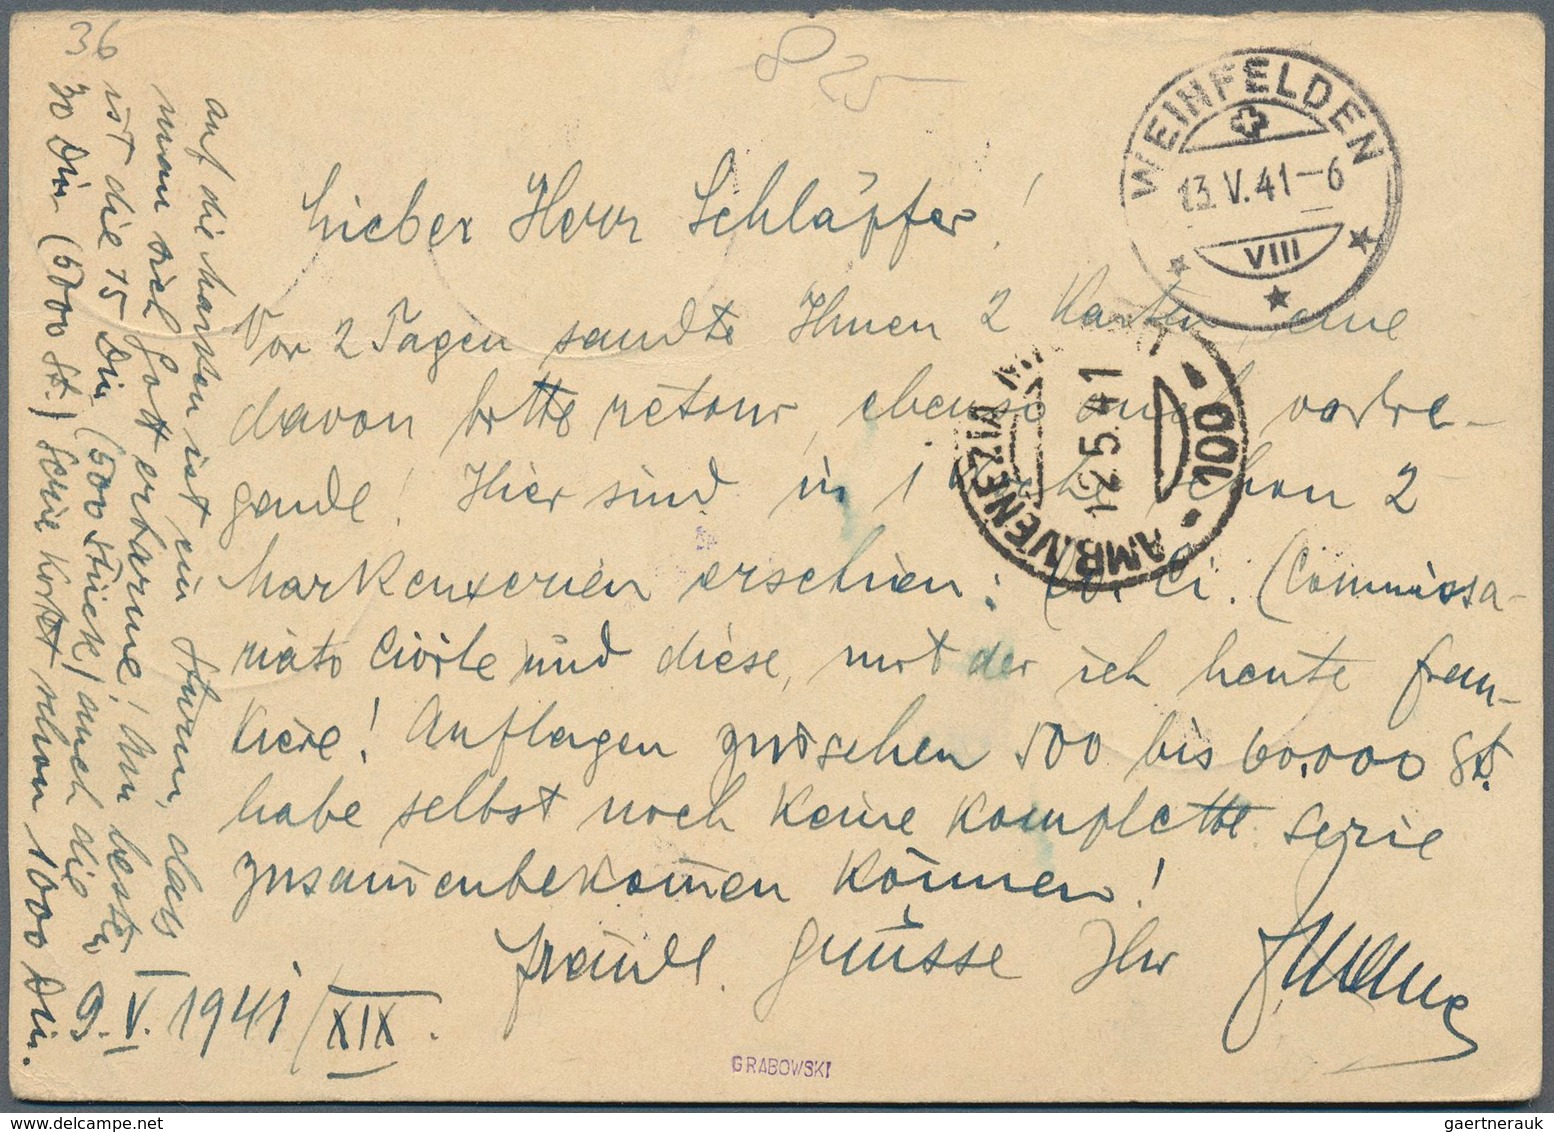 36
8 25
WEINFELDEN
13.V.41–6
VIII
AMB.VENEZIA
12.5.41
100
Lieber Herr Schläpfer!
Vor 2 Tagen sandte Ihnen 2 Karten, eine
davon bitte retour, ebenso auch vorlie-
gende! Hier sind in 1 Woche schon 2
Markenserien erschien: Co. Ci. (Commissa-
riato Civile und diese, mit der ich heute fran-
kiere! Auflagen zwischen 500 bis 60.000 St.
habe selbst noch keine komplette Serie
zusammenbekommen können!
freundl. Grüsse Ihr
9.V.1941/XIX.
auf die Marken ist ein Sturm, dass
man sich Gott erbarme! Am besten
ist die 15 Din (500 Stück) auch die
30 Din (5000 St.) Serie kostet schon 1000 Din.
GRABOWSKI
gaertnerauk